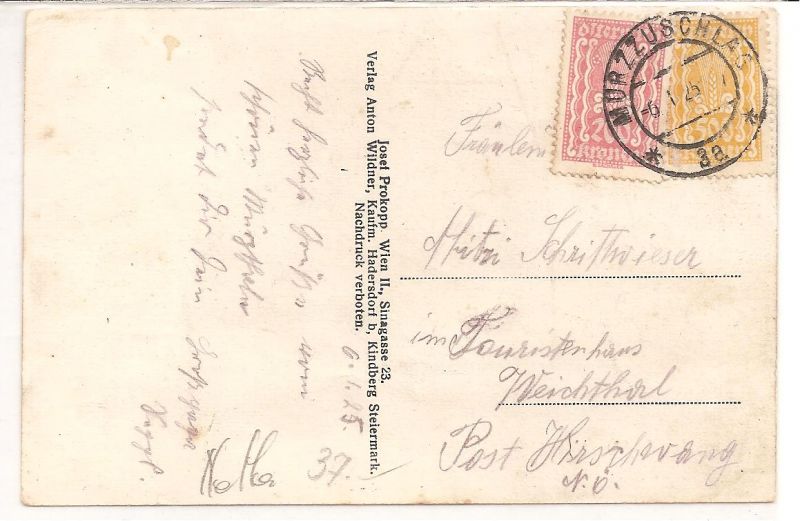 Recht herzliche Grüße vom
schönen Mürztale
sendet Dir Dein
6. 1. 25.
37.
Josef Prokopp, Wien II., Sinagasse 23.
Verlag Anton Wildner, Kaufm. Hadersdorf b, Kindberg Steiermark.
Nachdruck verboten.
MÜRZZUSCHLAG
-6. I. 25
* 3a *
Fräulein
Mitzi Schrittwieser
im Touristenhaus
Weichthal
Post Hirschwang
N.Ö.